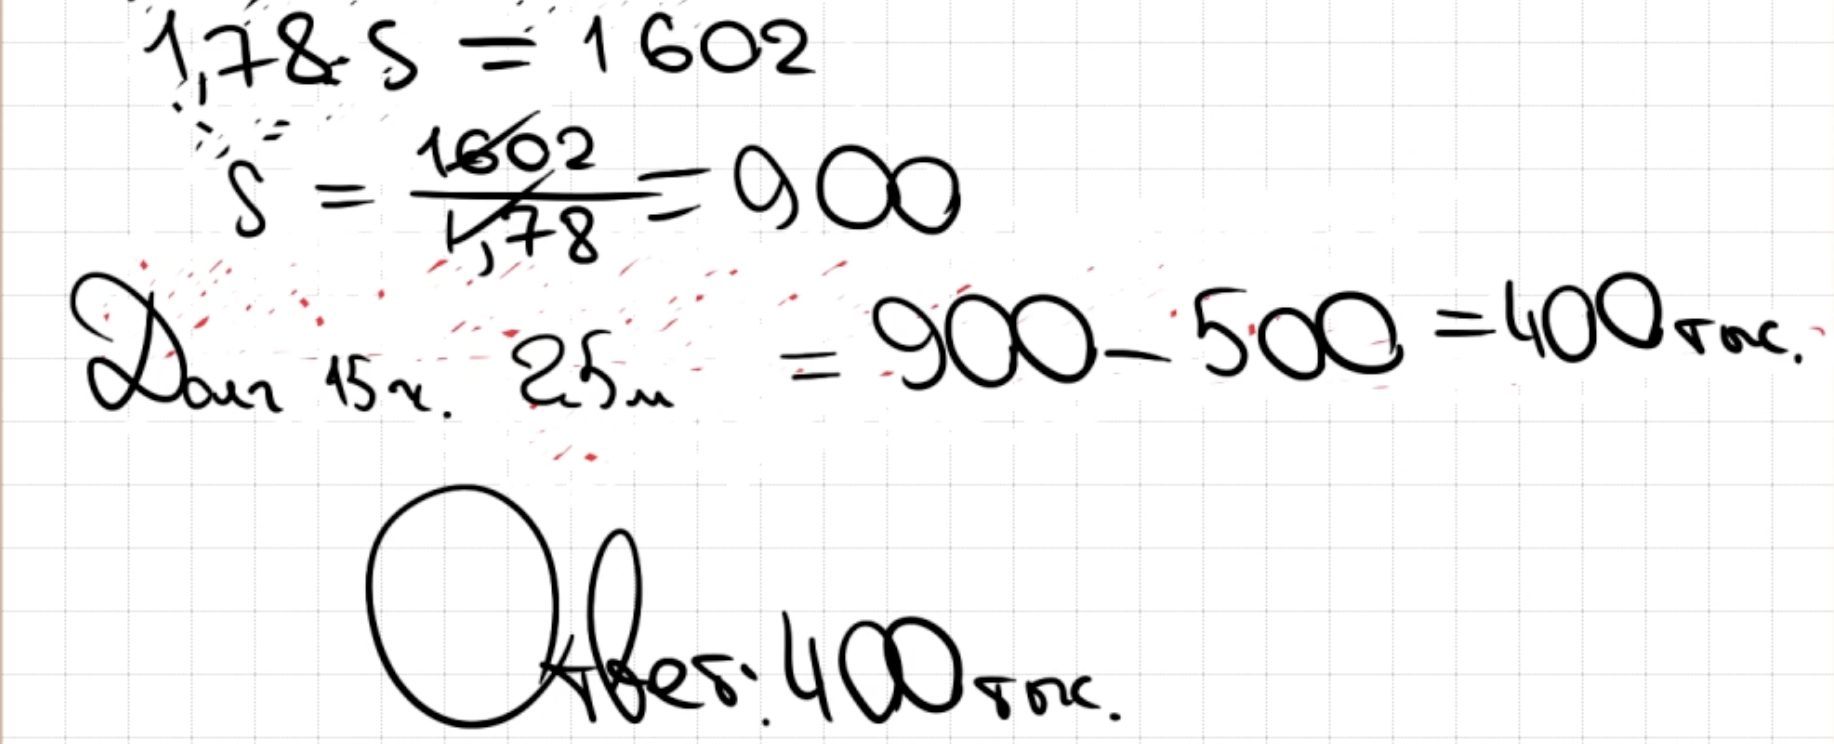 1,78·S = 1602
S = 1602/1,78 = 900
Долг 15 25м = 900 - 500 = 400 тыс.
Ответ: 400 тыс.